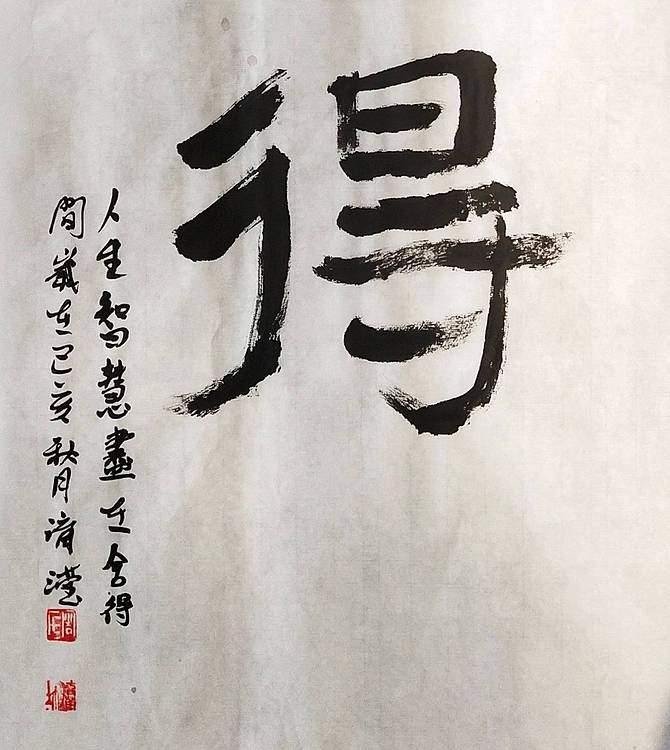 得
人生智慧盡在舍得
間歲在己亥秋月清瀅